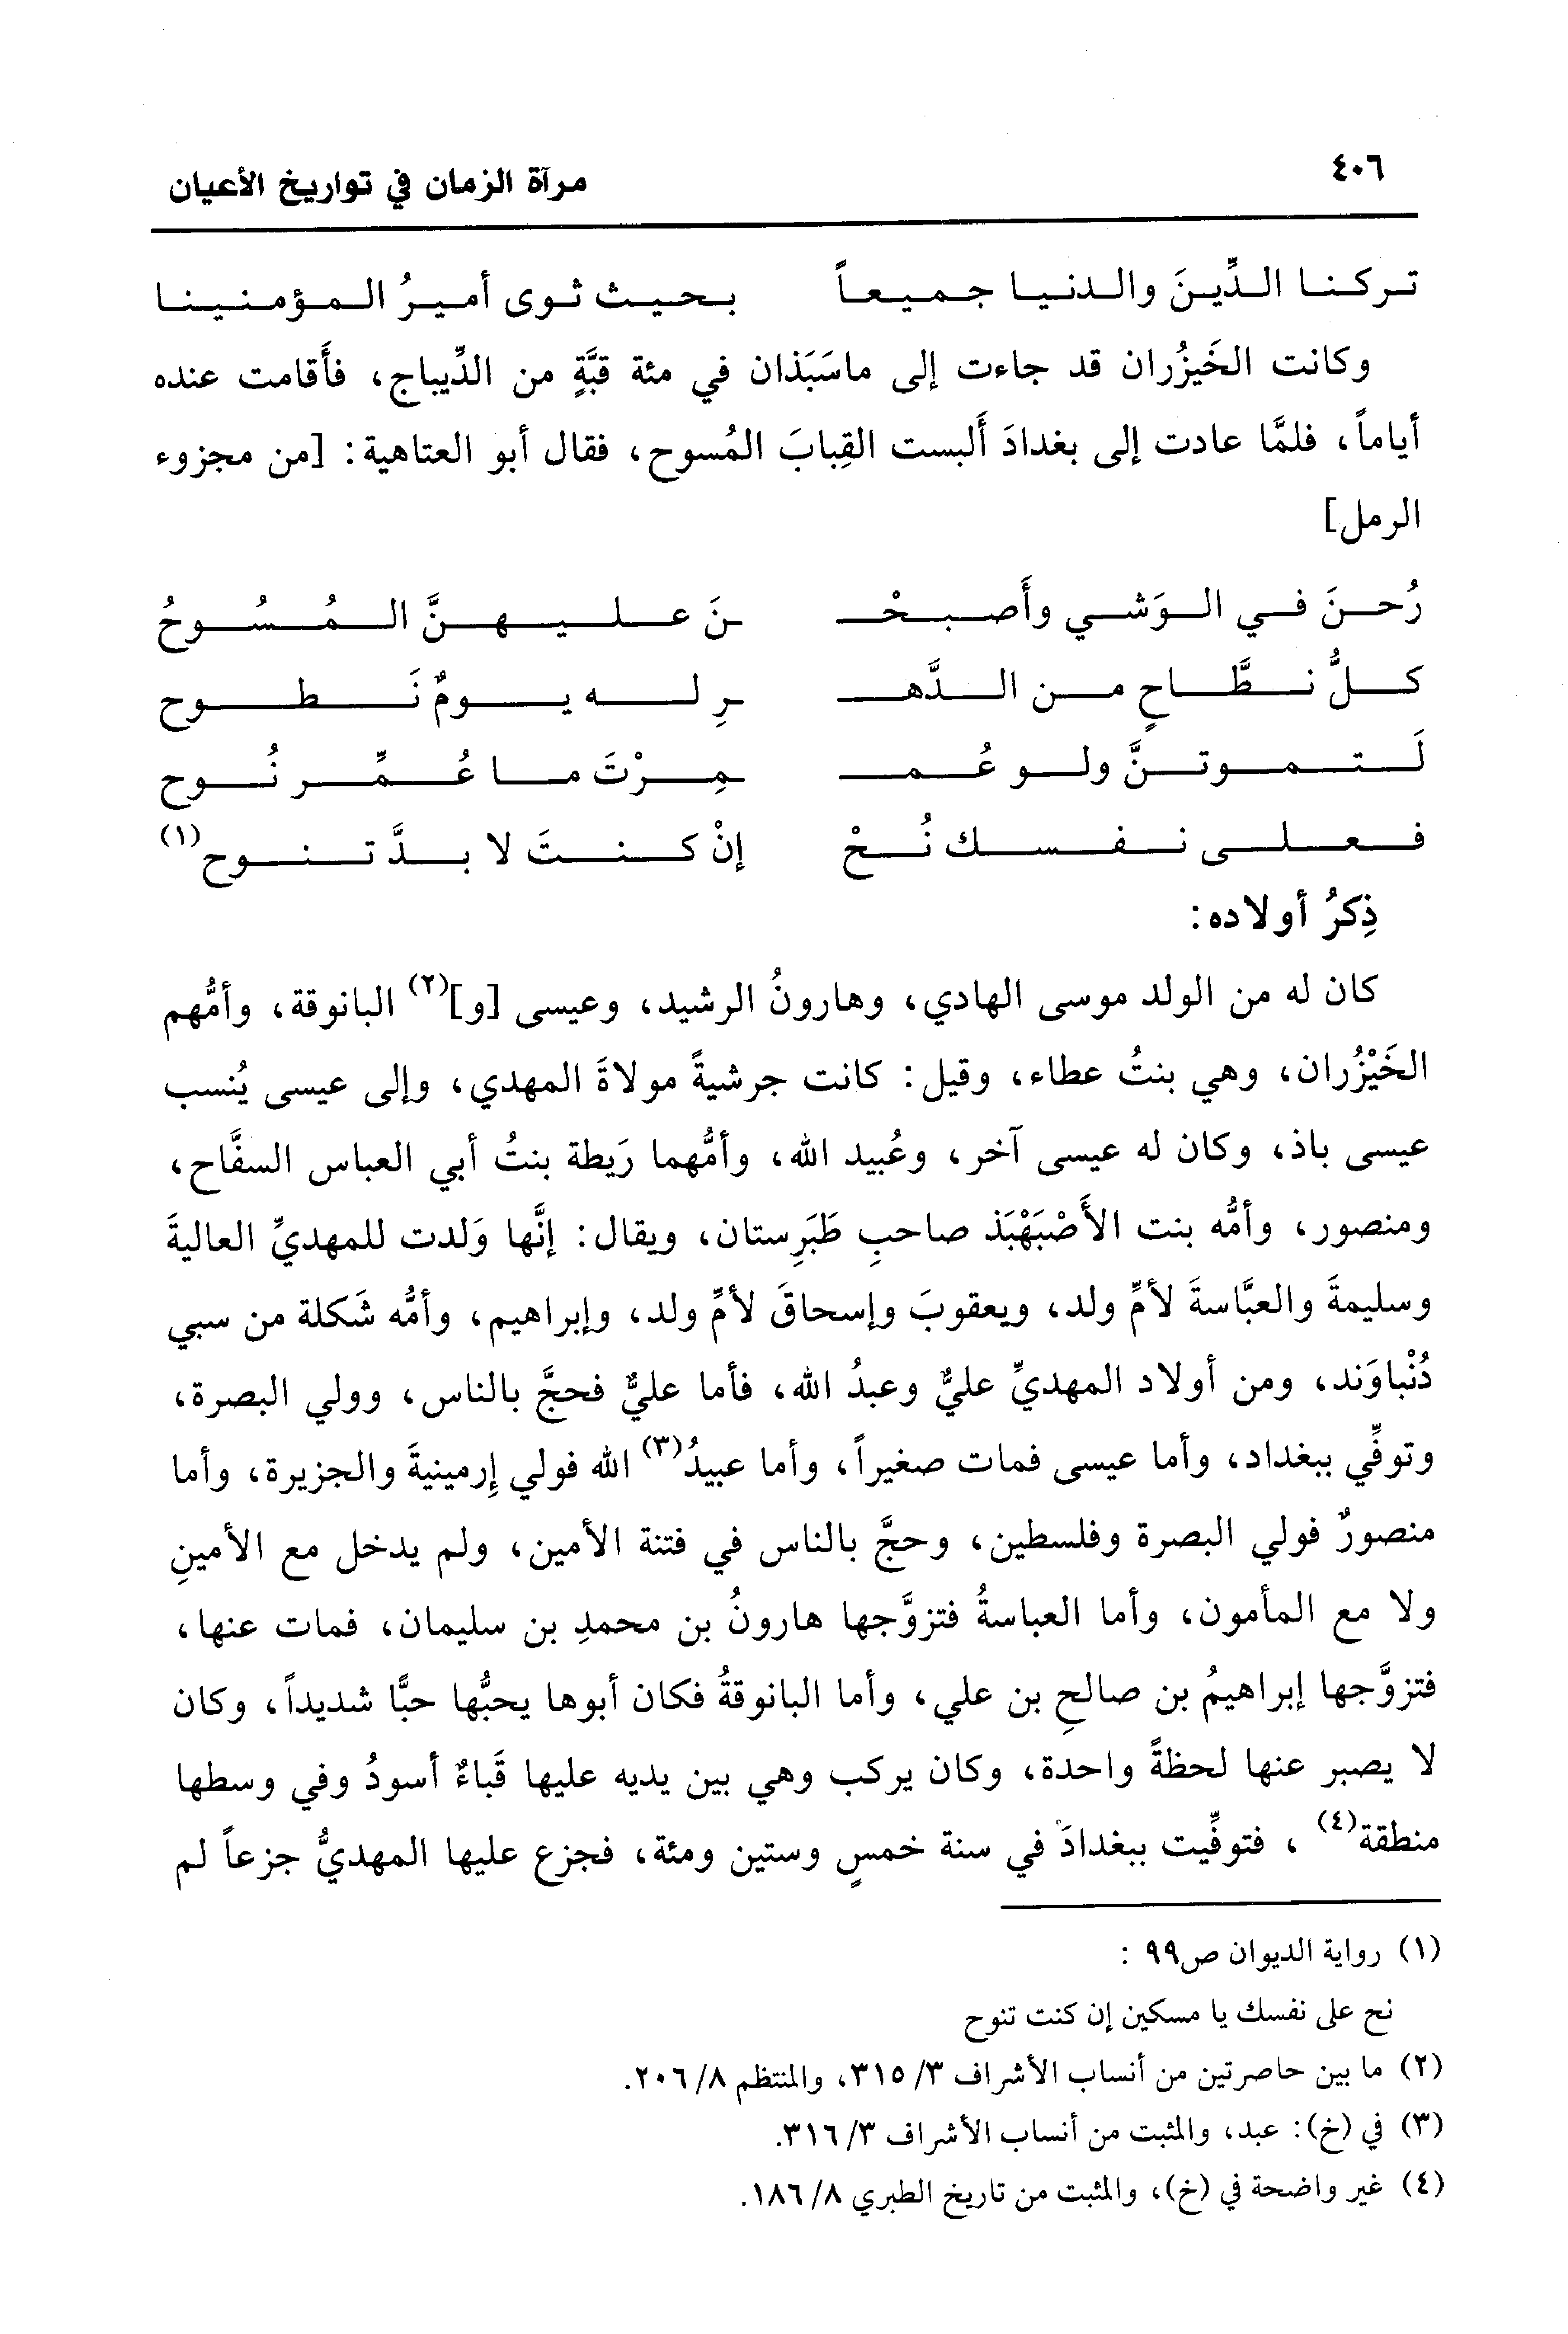 ٤٠٦
مرآة الزمان في تواريخ الأعيان
تركنا الدِّينَ والدنيا جميعاً بحيث ثوى أميرُ المؤمنينا
وكانت الخَيزُران قد جاءت إلى ماسَبَذان في مئة قبَّةٍ من الدِّيباج، فأَقامت عنده
أياماً، فلمَّا عادت إلى بغدادَ أَلبست القِبابَ المُسوح، فقال أبو العتاهية: [من مجزوء
الرمل]
رُحنَ في الوَشي وأَصبحْـ ـنَ عليهنَّ المُسُوحُ
كلُّ نطَّاحٍ من الدَّهـ ـرِ له يومٌ نَطوح
لَتموتنَّ ولو عُمـ ـمِرْتَ ما عُمِّر نُوح
فعلى نفسك نُحْ إنْ كنتَ لا بدَّ تنوح(١)
ذِكرُ أولاده:
كان له من الولد موسى الهادي، وهارونُ الرشيد، وعيسى [و](٢) البانوقة، وأمُّهم
الخَيْزُران، وهي بنتُ عطاء، وقيل: كانت جرشيةً مولاةَ المهدي، وإلى عيسى يُنسب
عيسى باذ، وكان له عيسى آخر، وعُبيد الله، وأمُّهما رَيطة بنتُ أبي العباس السفَّاح،
ومنصور، وأمُّه بنت الأَصْبَهْبَذ صاحبِ طَبَرِستان، ويقال: إنَّها وَلدت للمهديِّ العاليةَ
وسليمةَ والعبَّاسةَ لأمِّ ولد، ويعقوبَ وإسحاقَ لأمِّ ولد، وإبراهيم، وأمُّه شَكلة من سبي
دُنْباوَند، ومن أولاد المهديِّ عليٌّ وعبدُ الله، فأما عليٌّ فحجَّ بالناس، وولي البصرة،
وتوفِّي ببغداد، وأما عيسى فمات صغيراً، وأما عبيدُ(٣) الله فولي إرمينيةَ والجزيرة، وأما
منصورٌ فولي البصرة وفلسطين، وحجَّ بالناس في فتنة الأمين، ولم يدخل مع الأمينِ
ولا مع المأمون، وأما العباسةُ فتزوَّجها هارونُ بن محمدِ بن سليمان، فمات عنها،
فتزوَّجها إبراهيمُ بن صالحِ بن علي، وأما البانوقةُ فكان أبوها يحبُّها حبًّا شديداً، وكان
لا يصبر عنها لحظةً واحدة، وكان يركب وهي بين يديه عليها قَباءٌ أسودُ وفي وسطها
منطقة(٤) ، فتوفِّيت ببغدادَ في سنة خمسٍ وستين ومئة، فجزع عليها المهديُّ جزعاً لم
(١) رواية الديوان ص٩٩ :
نح على نفسك يا مسكين إن كنت تنوح
(٢) ما بين حاصرتين من أنساب الأشراف ٣/ ٣١٥، والمنتظم ٨/ ٢٠٦.
(٣) في (خ): عبد، والمثبت من أنساب الأشراف ٣/ ٣١٦.
(٤) غير واضحة في (خ)، والمثبت من تاريخ الطبري ٨/ ١٨٦.